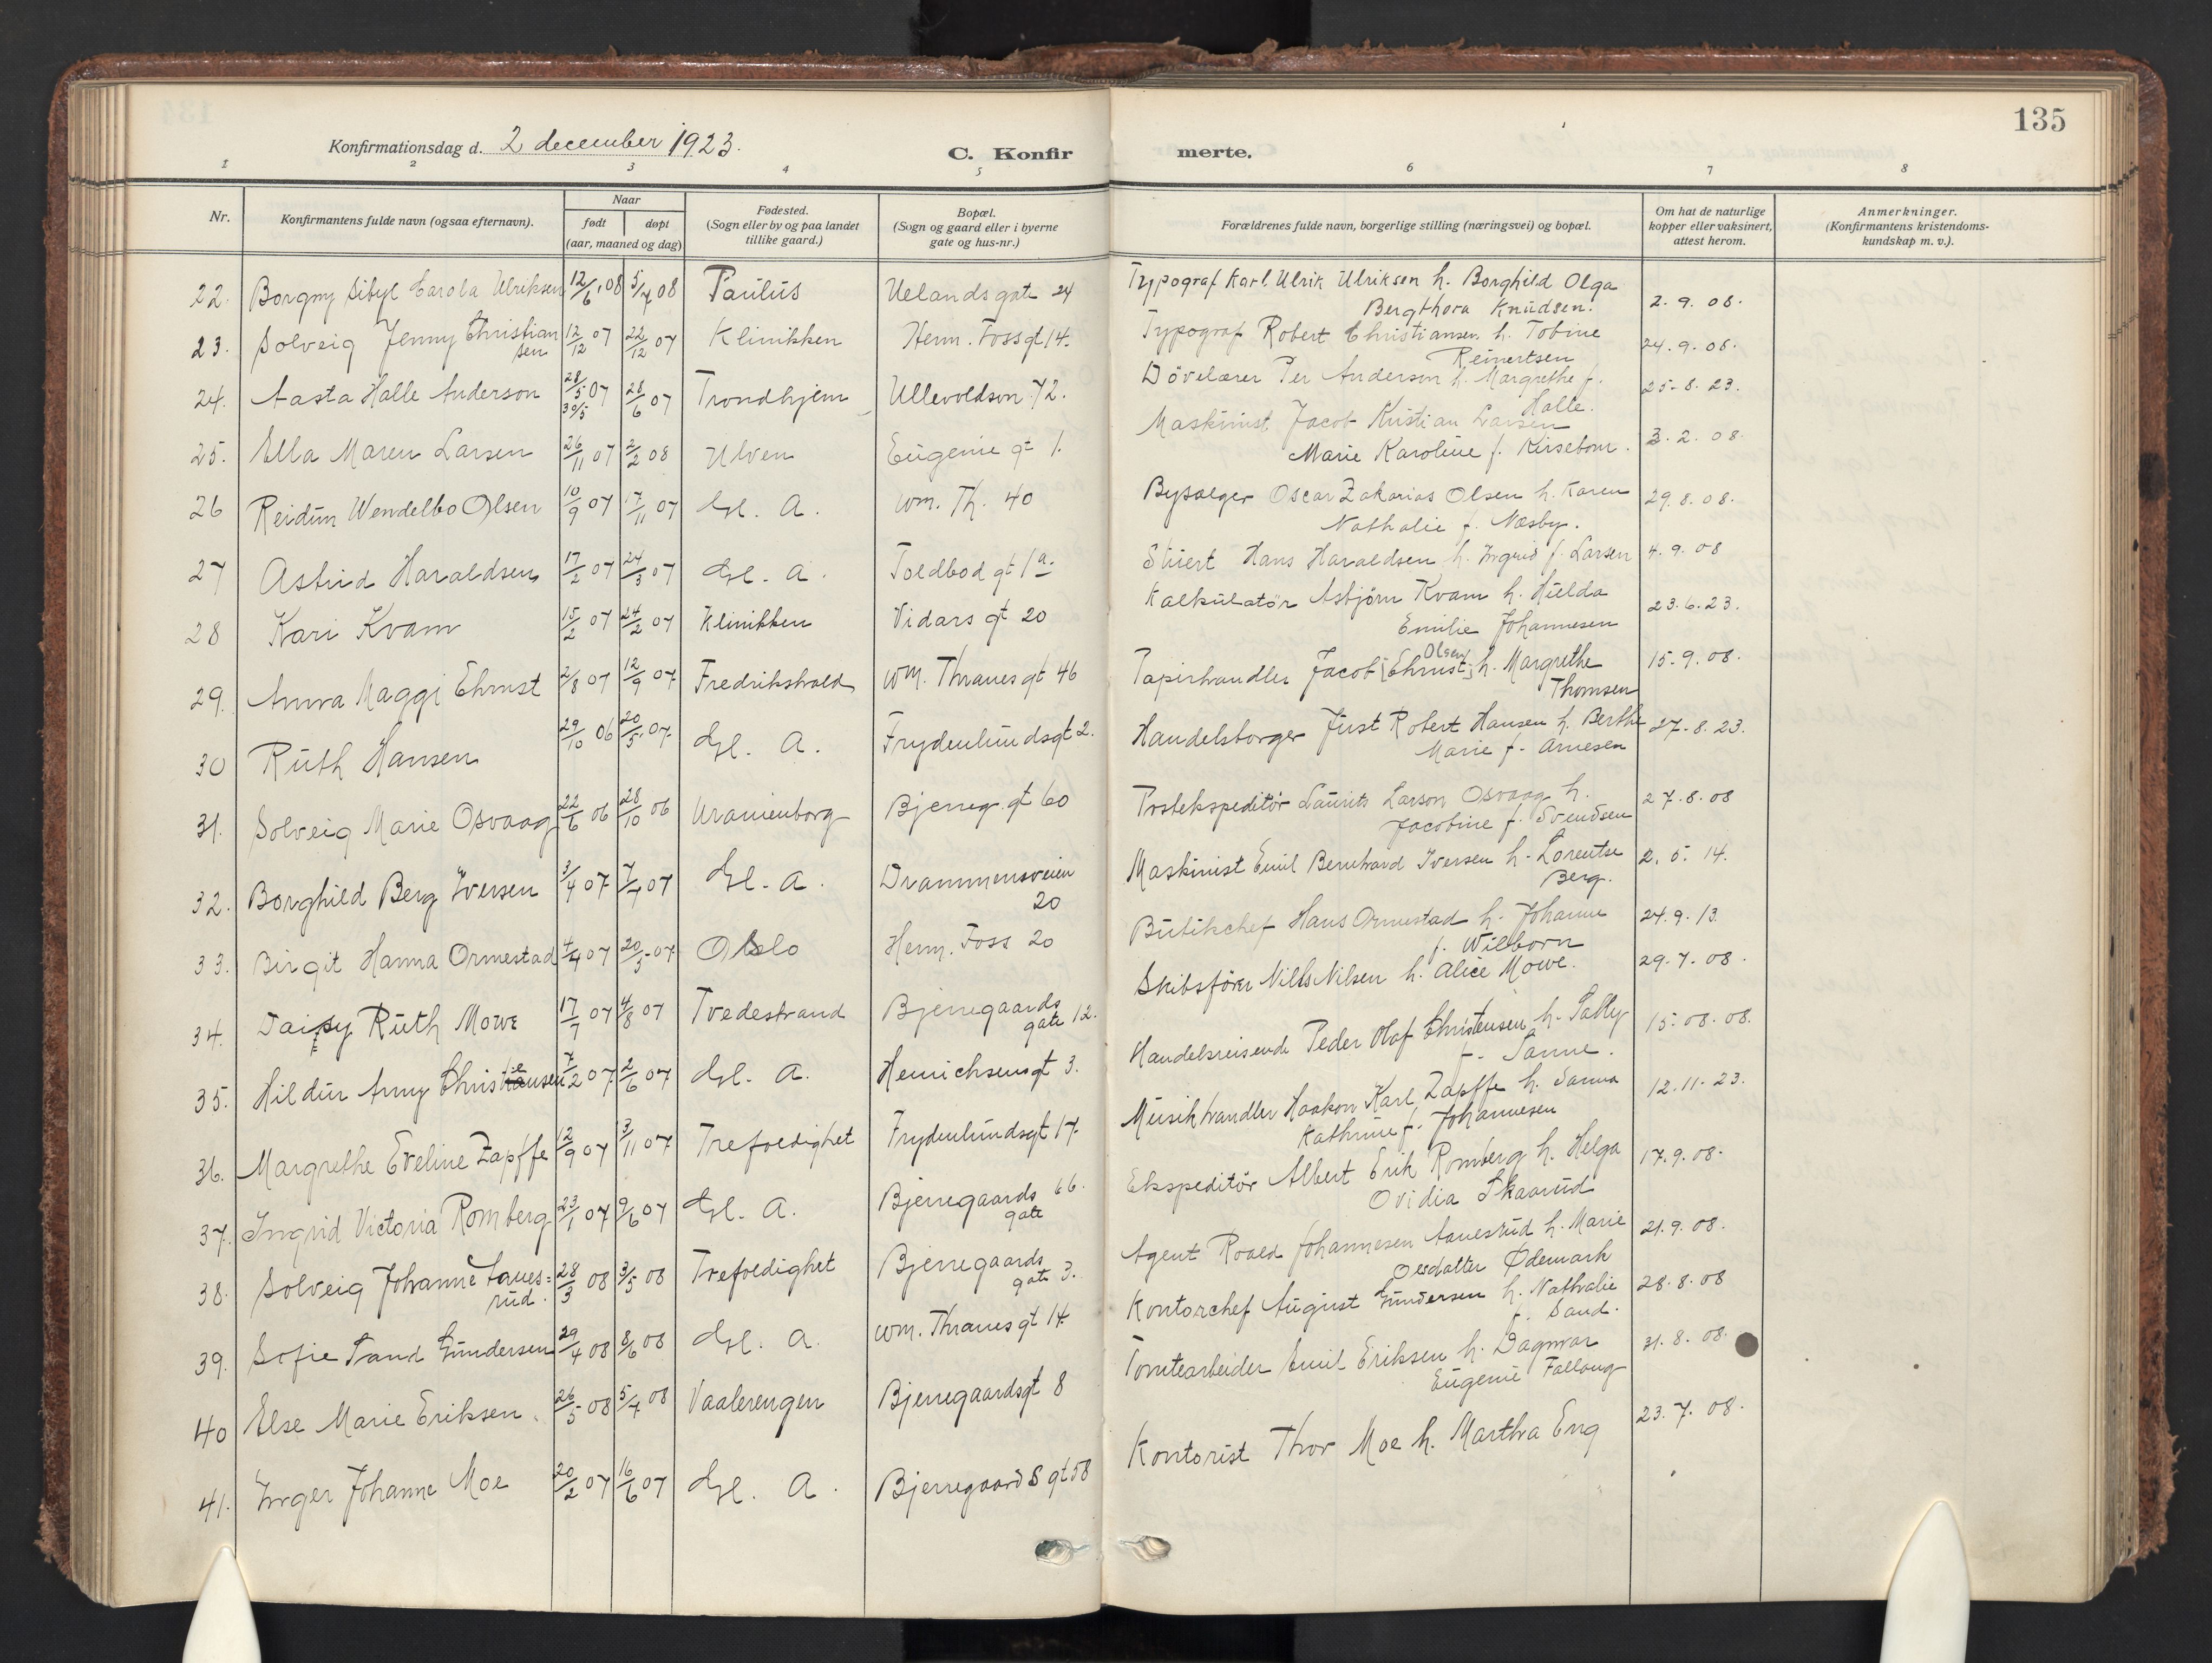 135
Konfirmationsdag d. 2 december 1923.
C. Konfir
merte.
1 2 3 4 5 6 7 8
Nr.
Konfirmantens fulde navn (ogsaa efternavn).
Naar
født døpt
(aar, maaned og dag)
Fødested.
(Sogn eller by og paa landet
tillike gaard.)
Bopæl.
(Sogn og gaard eller i byerne
gate og hus-nr.)
Forældrenes fulde navn, borgerlige stilling (næringsvei) og bopæl.
Om hat de naturlige
kopper eller vaksinert,
attest herom.
Anmerkninger.
(Konfirmantens kristendoms-
kundskap m. v.).
22. Borgny Sibyl Carola Ulriksen 12/6 08 5/7 08 Paulus Uelandsgate 24 Typograf Karl Ulrik Ulriksen h. Borghild Olga
Bergthora Knudsen. 2. 9. 08.
23. Solveig Jenny Christian 12/12 07 22/12 07 Klinikken Herm. Foss gt 14. Typograf Robert Christiansen h. Tobine
sen Reinertsen 24. 9. 08.
24. Aasta Halle Anderson 28/5 07 28/6 07 Trondhjem Ullevoldsvn 72. Døvelærer Per Anderson h. Margrethe f.
30/5 Halle. 25. 8. 23.
25. Ella Maren Larsen 26/11 07 2/2 08 Ulven Eugenie gt 1. Maskinist Jacob Kristian Larsen
Marie Karoline f. Kirsebom. 3. 2. 08.
26 Reidun Wendelbo Olsen 10/9 07 17/11 07 Gl. A. Wm. Th. 40 Bysælger Oscar Zakarias Olsen h. Karen
Nathalie f. Næsby. 29. 8. 08.
27 Astrid Haraldsen 17/2 07 24/3 07 Gl. A. Toldbod gt 1a. Stuert Hans Haraldsen h. Ingrid f. Larsen 4. 9. 08
28 Kari Kvam 15/2 07 24/2 07 Klinikken Vidars gt 20 Kalkulatör Asbjörn Kvam h. Hulda
Emilie Johannesen 23. 6. 23.
29. Anna Maggi Ehrnst 2/8 07 12/9 07 Fredrikshald Wm. Thranes gt 46 Papirhandler Jacob [Ehrnst] Olsen h. Margrethe
Thomsen 15. 9. 08.
30 Ruth Hansen 29/10 06 20/5 07. Gl. A. Frydenlundsgt 2. Handelsborger Just Robert Hansen h. Berthe
Marie f. Arnesen 27. 8. 23.
31. Solveig Marie Osvaag 22/6 06 28/10 06 Uranienborg Bjerreg. gt 60 Postekspeditör Laurits Larson Osvaag h.
Jacobine f. Svendsen 27. 8. 08
32. Borghild Berg Iversen 3/4 07 7/7 07 Gl. A. Drammensveien
20 Maskinist Emil Bernhard Iversen h. Lorentse
Berg. 2. 5. 14.
33. Birgit Hanna Ormestad 4/4 07 20/5 07 Oslo Herm. Foss 20 Butikchef Hans Ormestad h. Johanne
f. Wilborn 24. 9. 13.
34. Daisy Ruth Mowe 17/7 07 4/8 07 Tvedestrand Bjerregaards
gate 12. Skibsförer Nils Nilsen h. Alice Mowe. 29. 7. 08.
35. Hildur Anny Christensen 7/2 07 2/6 07 Gl. A. Henrichsensgt 3. Handelsreisende Peder Olaf Christensen h. Sally
f. Sanne. 15. 08. 08.
36. Margrethe Eveline Zapffe 12/9 07 3/11 07 Trefoldighet Frydenlundsgt 17. Musikhandler Haakon Karl Zapffe h. Sanna
Kathrine f. Johannesen 12. 11. 23.
37. Ingrid Victoria Romberg 23/1 07 9/6 07 Gl. A. Bjerregaards 66.
gate Ekspeditör Albert Erik Romberg h. Helga
Ovidia Skaarud 17. 9. 08.
38. Solveig Johanne Aanes= 28/3 08 3/5 08 Trefoldighet Bjerregaards
rud. gate 3. Agent Roald Johannesen Aanesrud h. Marie
Olsdatter Ødemark 21. 9. 08.
39. Sofie Sand Gundersen 29/4 08 8/6 08 Gl. A. Wm. Thranes gt 14 Kontorchef August Gundersen h. Nathalie
f. Sand. 28. 8. 08
40 Else Marie Eriksen 26/5 08 5/7 08 Vaalerengen Bjerregaardsgt 8 Tomtearbeider Emil Eriksen h. Dagmar
Eugenie Fallang 31. 8. 08.
41. Inger Johanne Moe 20/2 07 16/6 07 Gl. A. Bjerregaards gt 58 Kontorist Thor Moe h. Martha Eng 23. 7. 08.